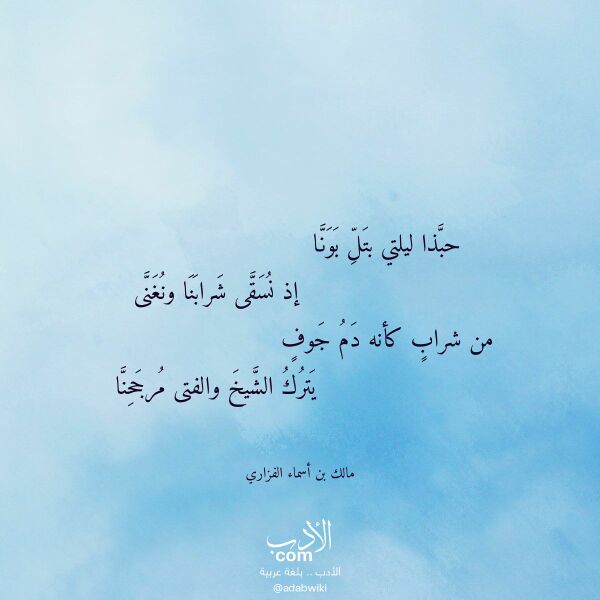 حبَّذا ليلتي بتَلِّ بَوَنَّا
إذ نُسَقَّى شَرابَنَا ونُغَنَّى
من شرابٍ كأنه دَمُ جَوفٍ
يَترُكُ الشَّيخَ والفتى مُرجَحِنَّا
مالك بن أسماء الفزاري
الأدب
com
الأدب .. بلغة عربية
@adabwiki